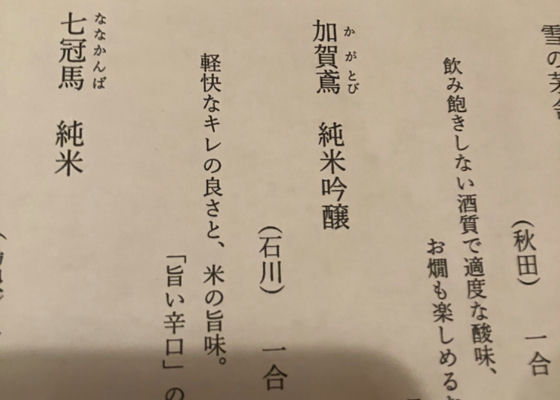 雪の茅舎
(秋田) 一合
飲み飽きしない酒質で適度な酸味、
お燗も楽しめる
かがとび
加賀鳶 純米吟醸
(石川) 一合
軽快なキレの良さと、米の旨味。
「旨い辛口」の
ななかんば
七冠馬 純米